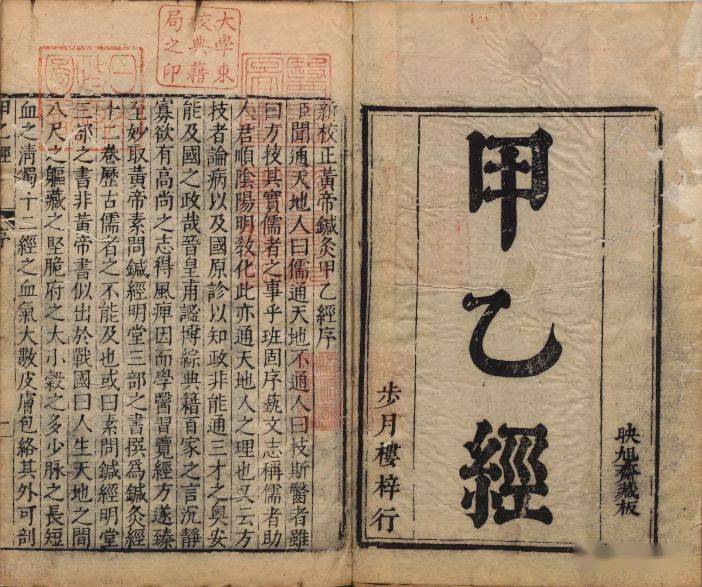 映旭齋藏板
甲乙經
步月樓梓行
大學東
校典籍
局之印
新校正黃帝鍼灸甲乙經序
臣聞通天地人曰儒通天地不通人曰技斯醫者雖
曰方技其實儒者之事乎班固序藝文志稱儒者助
人君順陰陽明敎化此亦通天地人之理也又云方
技者論病以及國原診以知政非能通三才之奥安
能及國之政哉晉皇甫謐博綜典籍百家之言沉靜
寡欲有高尚之志得風痺因而學醫習覽經方遂臻
至妙取黃帝素問鍼經明堂三部之書撰爲鍼灸經
十二卷歷古儒者之不能及也或曰素問鍼經明堂
三部之書非黃帝書似出於戰國曰人生天地之間
八尺之軀藏之堅脆府之大小穀之多少脉之長短
血之淸濁十二經之血氣大數皮膚包絡其外可剖
甲乙經
序
一